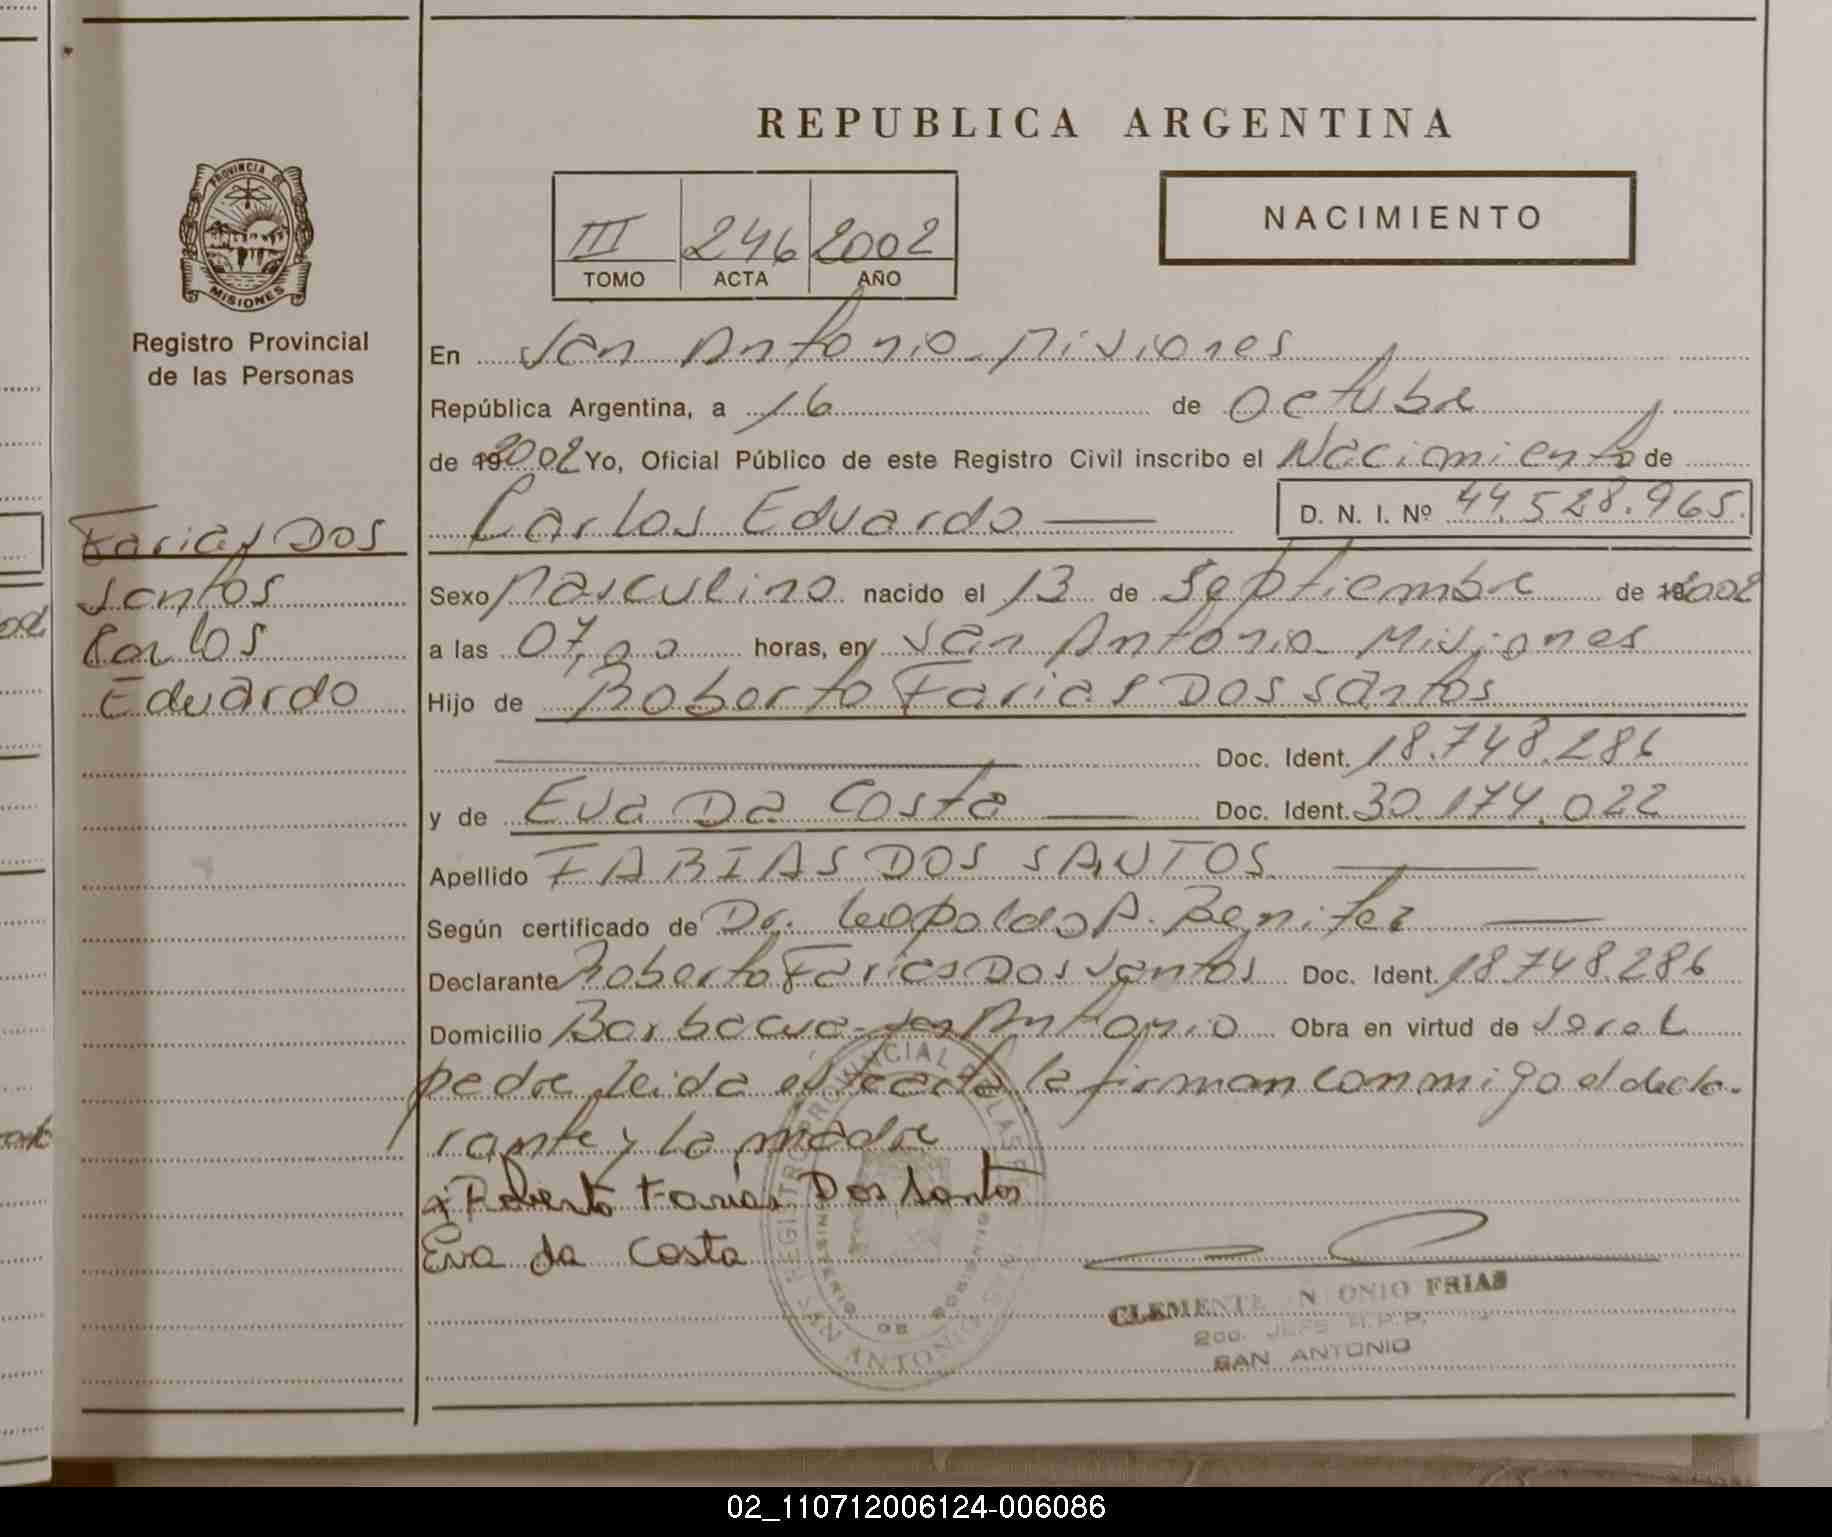 REPUBLICA ARGENTINA
PROVINCIA DE
MISIONES
Registro Provincial
de las Personas
III 246 2002
TOMO ACTA AÑO
NACIMIENTO
En San Antonio - Misiones
República Argentina, a 16 de Octubre
de 2002 Yo, Oficial Público de este Registro Civil inscribo el Nacimiento de
Carlos Eduardo D. N. I. Nº 44.528.965.
Farias Dos
Santos
Carlos
Eduardo
Sexo Masculino nacido el 13 de Septiembre de 2002
a las 07,00 horas, en San Antonio - Misiones
Hijo de Roberto Farias Dos Santos
Doc. Ident. 18.748.286
y de Eva Da Costa Doc. Ident. 30.174.022
Apellido FARIAS DOS SANTOS
Según certificado de Dr. Leopoldo A. Benitez
Declarante Roberto Farias Dos Santos Doc. Ident. 18.748.286
Domicilio Barbacua - San Antonio Obra en virtud de ser el
padre leida esta acta la firman conmigo el decla-
rante y la madre
Roberto Farias Dos Santos
Eva da Costa
REGISTRO PROVINCIAL DE LAS
MINISTERIO DE GOBIERNO
SAN ANTONIO
CLEMENTE ONIO FRIAS
2do. JEFE R.P.P.
SAN ANTONIO
02_110712006124-006086